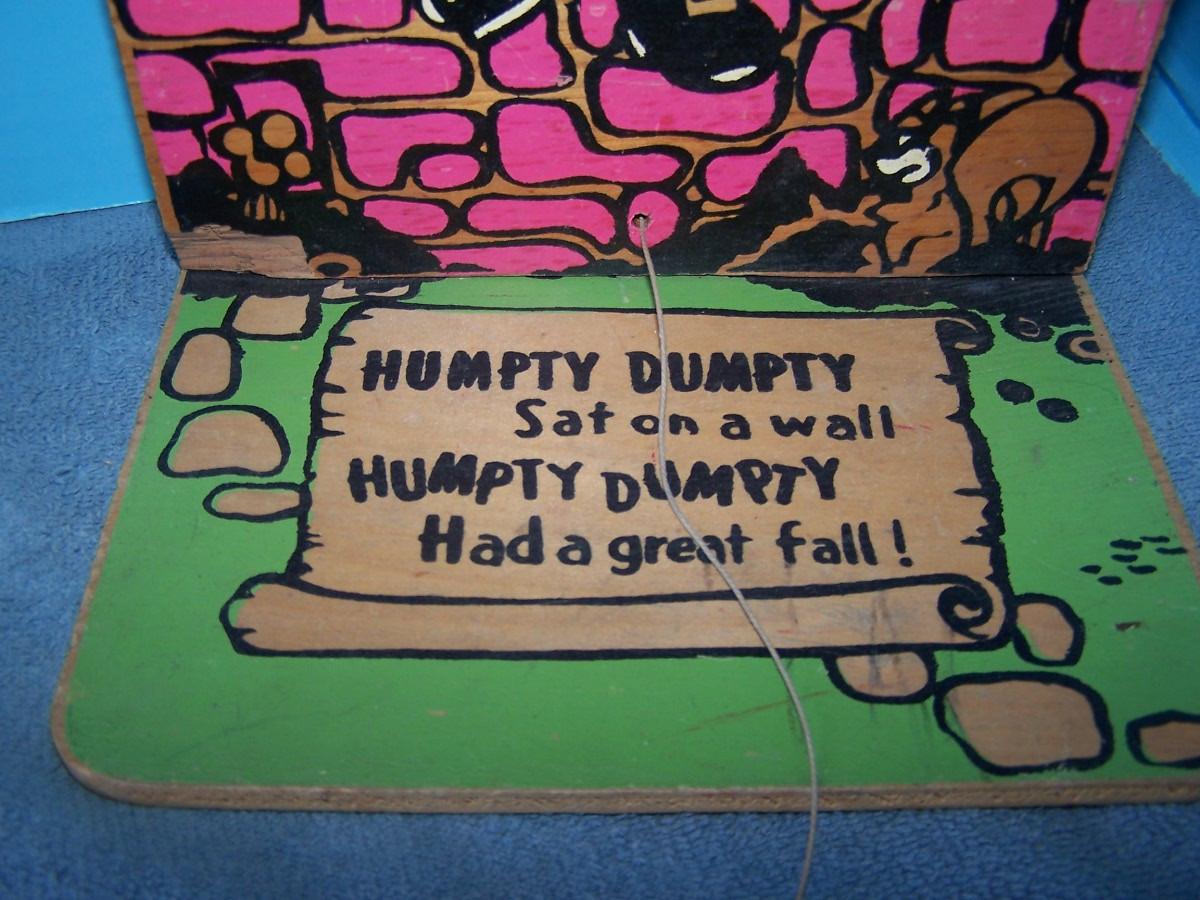 HUMPTY DUMPTY
Sat on a wall
HUMPTY DUMPTY
Had a great fall!